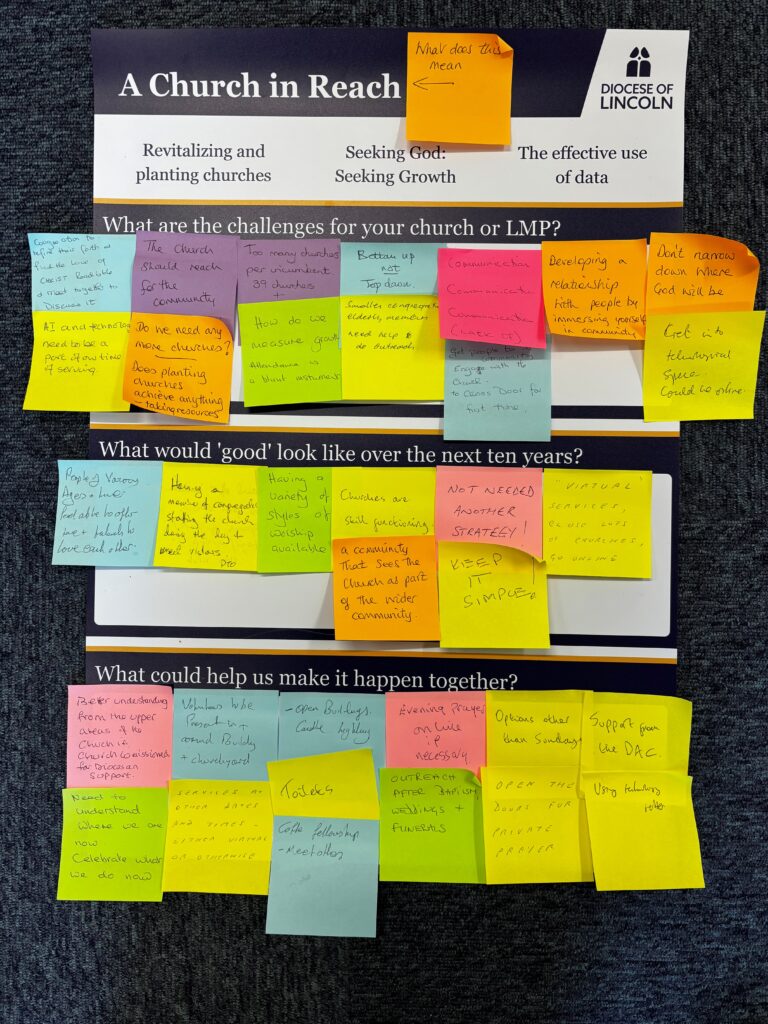 A Church in Reach
What does this
mean
DIOCESE OF
LINCOLN
Revitalizing and
planting churches
Seeking God:
Seeking Growth
The effective use
of data
What are the challenges for your church or LMP?
Congregation to
their faith &
find the love of
CHRIST
& meet together to
Discuss it
The Church
should reach
for the
community
Too many churches
per incumbent
39 churches
Bottom up
not
Top down.
Communication
Communication
Communication
(lack of)
Developing a
relationship
with people by
immersing yourself
in community
Don't narrow
down where
God will be
AI and technology
need to be a
part of our time
of serving.
Do we need any
more churches?
Does planting
churches
achieve anything
- taking resources
How do we
measure growth
Attendance is
a blunt instrument
Smaller congregations
elderly members
need help to
do outreach
get people to
Engage with the
Church
to Cross Door for
first time.
Get into
technological
space.
Could be online.
What would 'good' look like over the next ten years?
People of Various
Ages +
feel able to offer
love each other.
Having a
member of congregation
staffing the church
during the day to
meet visitors
Having a
variety of
styles of
worship
available
Churches are
still functioning
NOT NEEDED
ANOTHER
STRATEGY!
"VIRTUAL"
SERVICES,
CLOSE LOTS
OF CHURCHES,
GO ONLINE
a community
that sees the
Church as part
of the wider
community.
KEEP
IT
SIMPLE!
What could help us make it happen together?
Better understanding
from the upper
areas of the
Church ie
Church Commissioners
for Diocesan
Support.
Volunteers to be
Present in +
around Building
+ churchyard
- open Buildings.
Evening Prayer
on line
if
necessary.
Options other
than Sundays
Support from
the DAC.
Need to
understand
where we are
now
Celebrate what
we do now
SERVICES AT
OTHER DATES
AND TIMES -
EITHER VIRTUAL
OR OTHERWISE
Toilets
Coffee fellowship
- Meet others
OUTREACH
AFTER BAPTISM,
WEDDINGS +
FUNERALS
OPEN THE
DOORS FOR
PRIVATE
PRAYER
Using technology
better